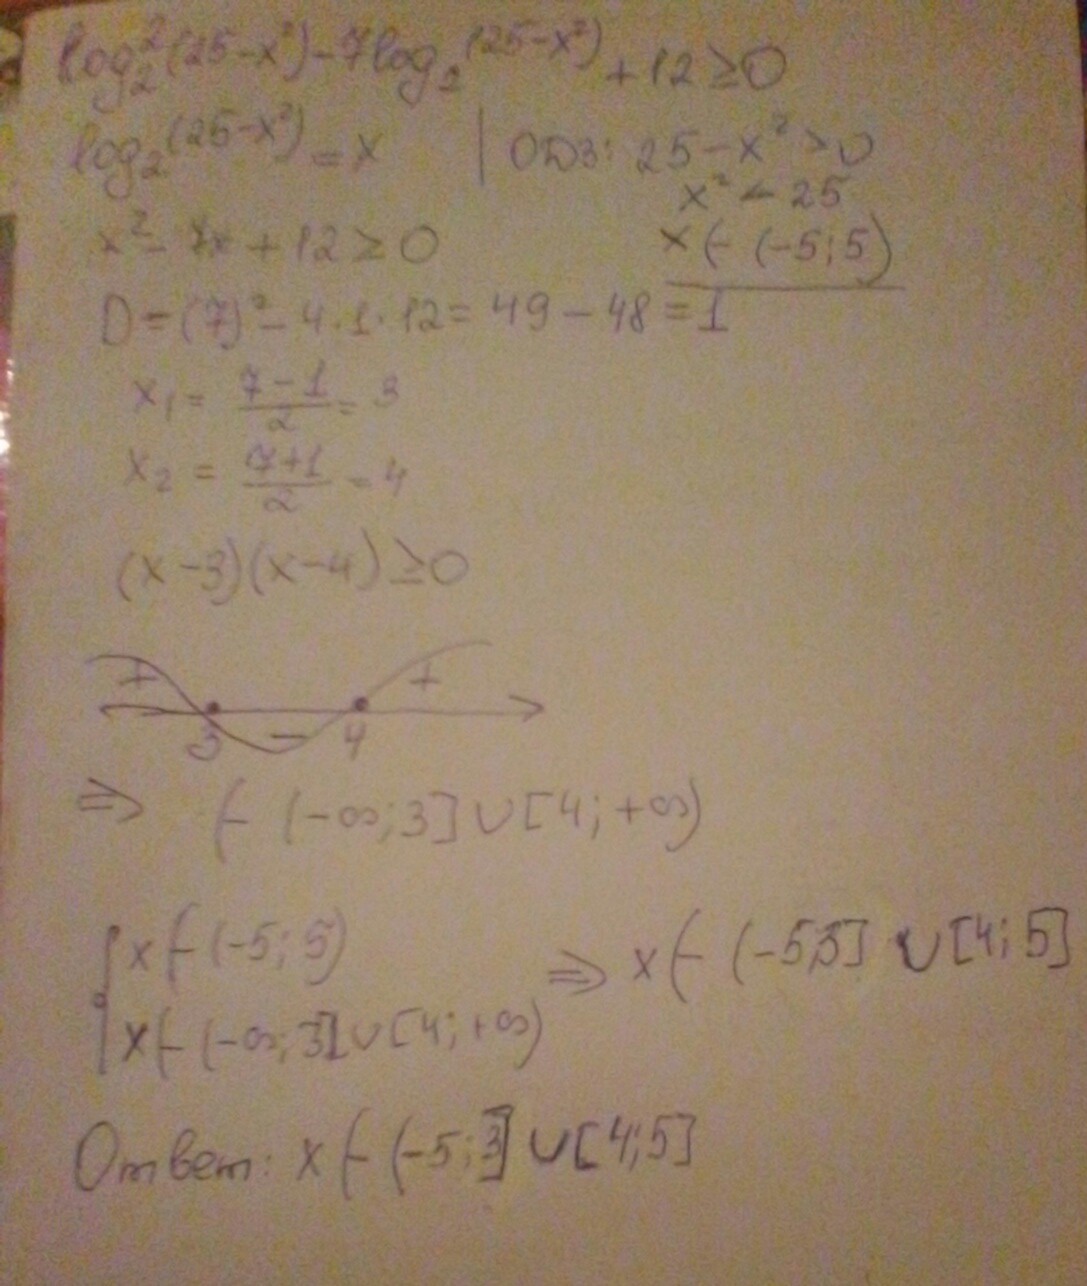 log₂²(25-x²)-7log₂(25-x²)+12≥0
log₂(25-x²)=x | ОДЗ: 25-x²>0
x²<25
x²-7x+12≥0
x∈(-5;5)
D=(7)²-4·1·12=49-48=1
x₁=(7-1)/2=3
x₂=(7+1)/2=4
(x-3)(x-4)≥0
+ - +
3 4
⇒ ∈(-∞;3]∪[4;+∞)
{x∈(-5;5)
x∈(-∞;3]∪[4;+∞) ⇒ x∈(-5;3]∪[4;5]
Ответ: x∈(-5;3]∪[4;5]